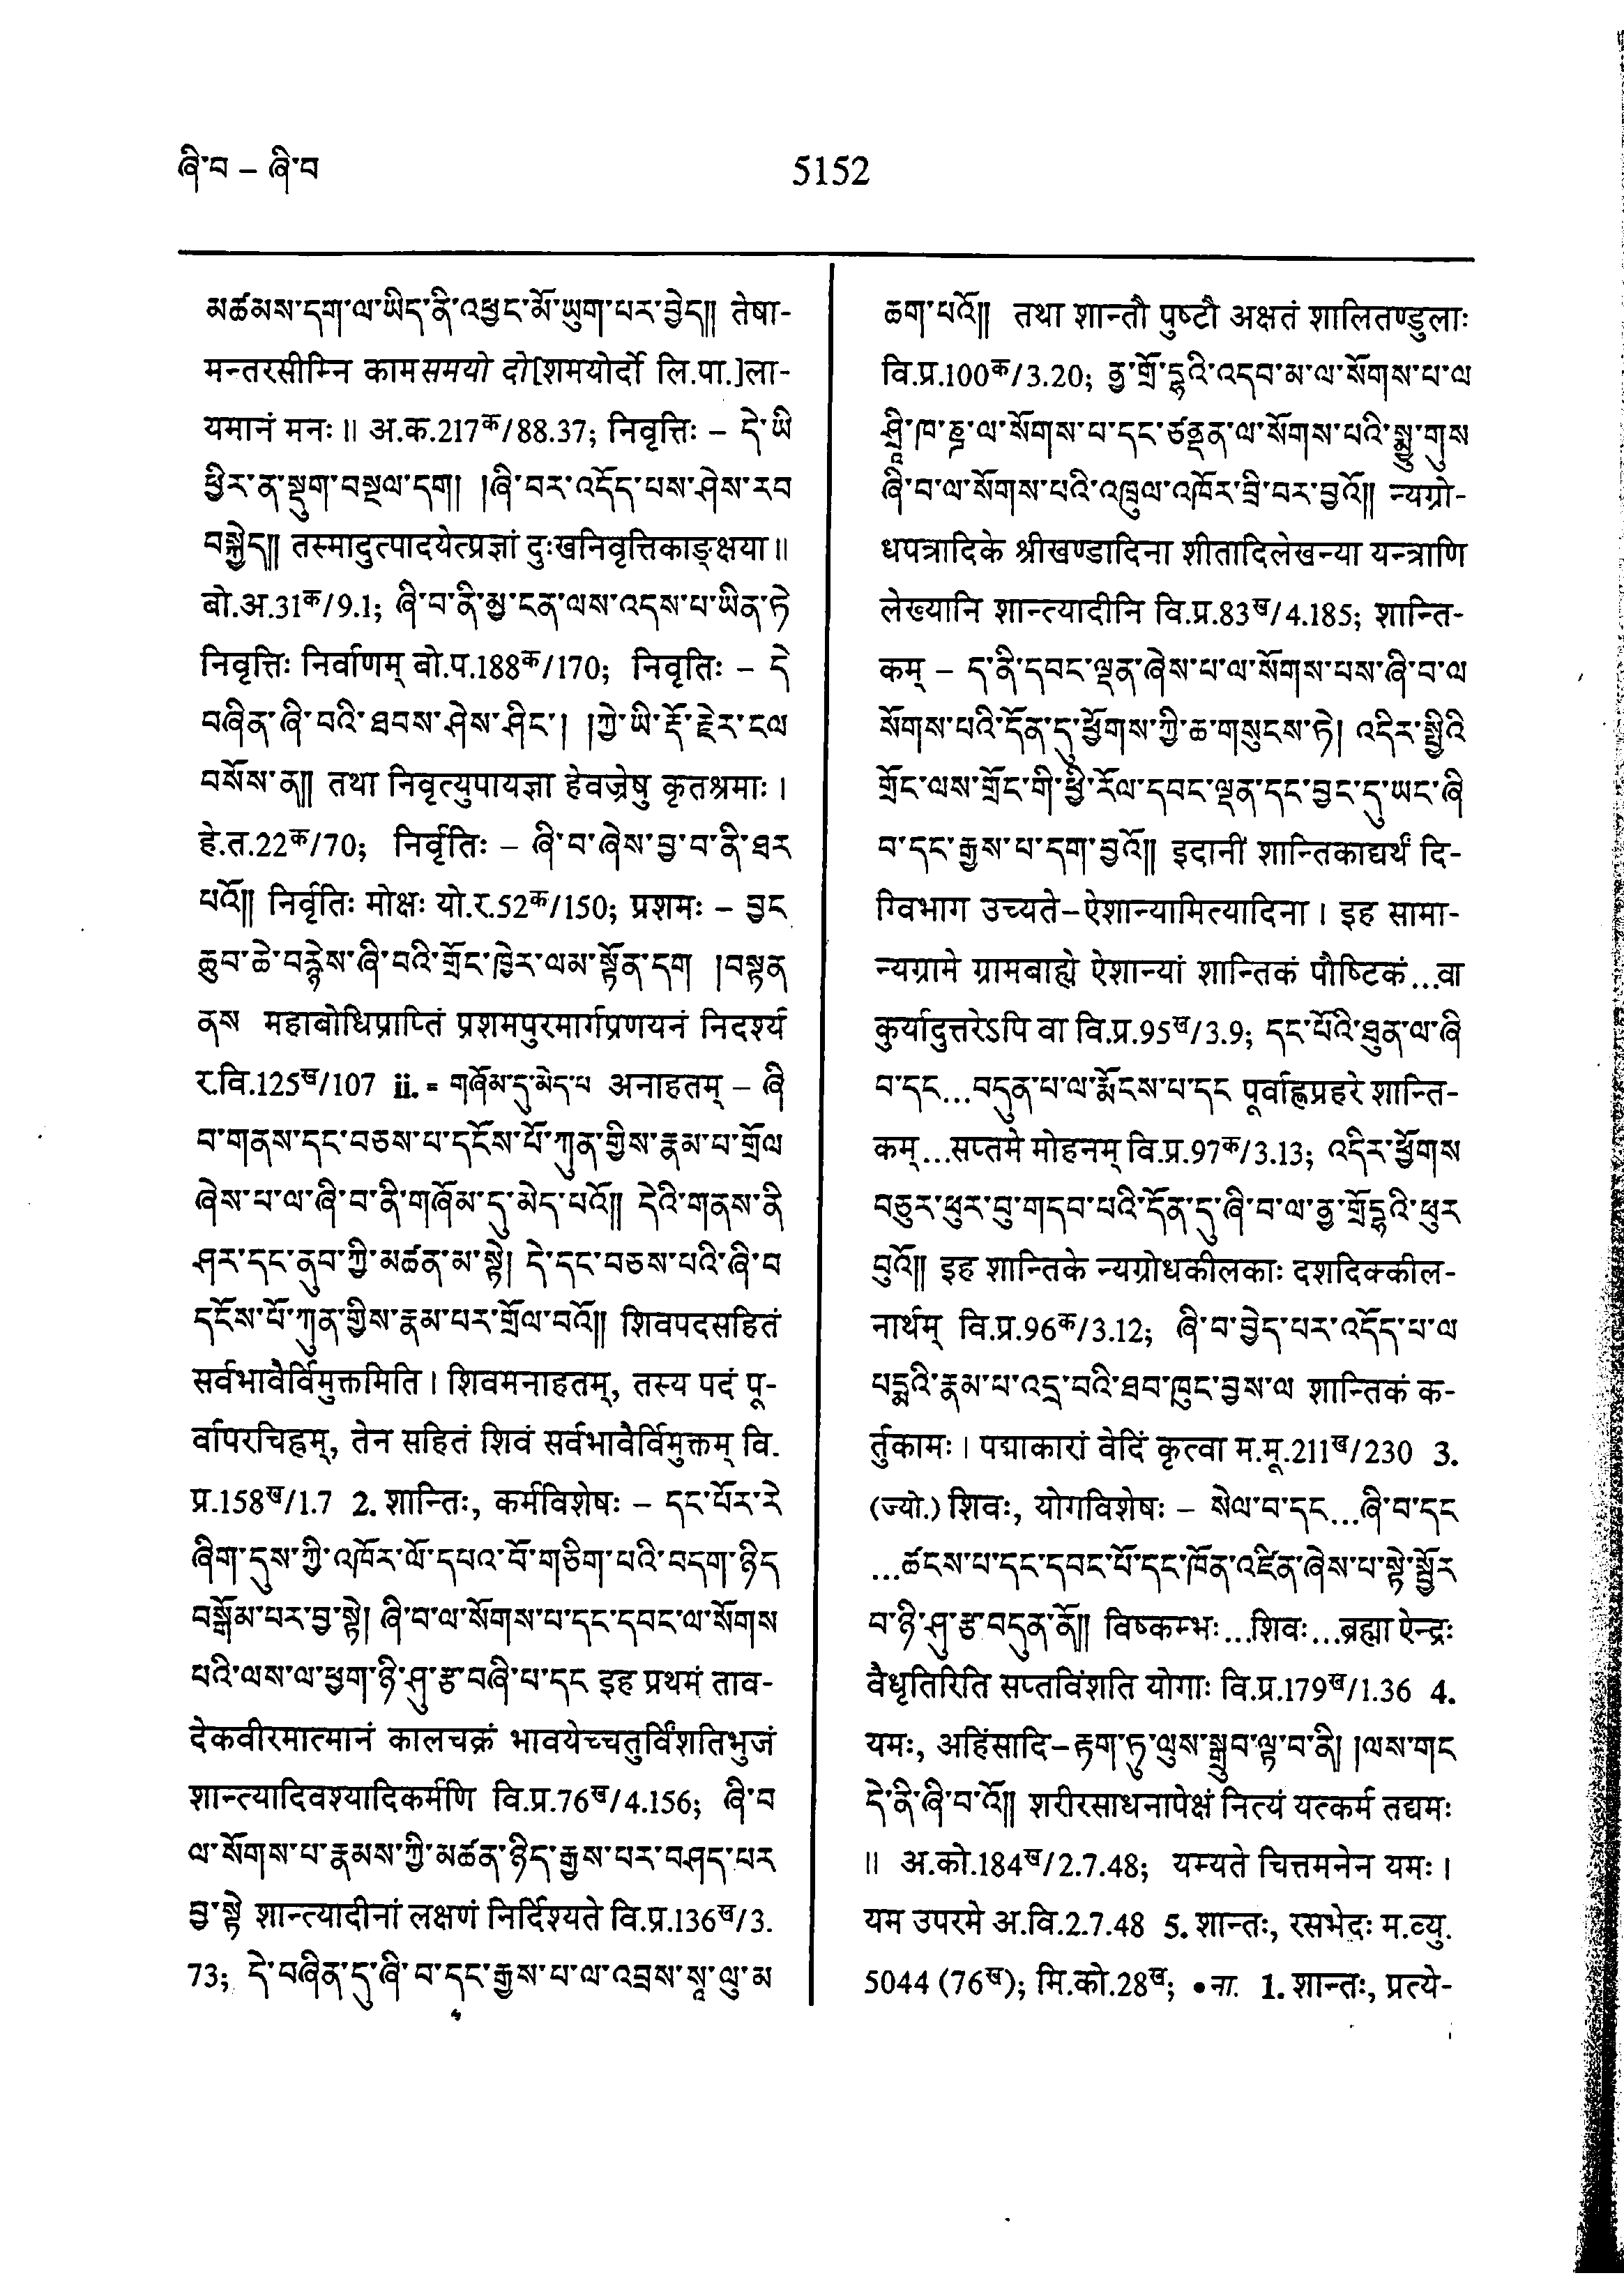 ཞི་བ – ཞི་བ
5152
མཚམས་དག་ལ་ཡིད་ནི་འཕྱང་མོ་ཡུག་པར་བྱེད།། तेषा-
मन्तरसीम्नि कामसमयो दो[शमयोर्दो लि.पा.]ला-
यमानं मनः॥ अ.क.217क/88.37; निवृत्तिः – དེ་ཡི
ཕྱིར་ན་སྡུག་བསྔལ་དག། །ཞི་བར་འདོད་པས་ཤེས་རབ
བསྐྱེད།། तस्मादुत्पादयेत्प्रज्ञां दुःखनिवृत्तिकाङ्क्षया॥
बो.अ.31क/9.1; ཞི་བ་ནི་མྱ་ངན་ལས་འདས་པ་ཡིན་ཏེ
निवृत्तिः निर्वाणम् बो.प.188क/170; निवृतिः – དེ
བཞིན་ཞི་བའི་ཐབས་ཤེས་ཤིང་། །ཀྱེ་ཡི་རྡོ་རྗེར་ངལ
བསོས་ན།། तथा निवृत्युपायज्ञा हेवज्रेषु कृतश्रमाः।
हे.त.22क/70; निर्वृतिः – ཞི་བ་ཞེས་བྱ་བ་ནི་ཐར
པའོ།། निर्वृतिः मोक्षः यो.र.52क/150; प्रशमः – བྱང
ཆུབ་ཆེ་བརྙེས་ཞི་བའི་གྲོང་ཁྱེར་ལམ་སྟོན་དག །བསྟན
ནས महाबोधिप्राप्तिं प्रशमपुरमार्गप्रणयनं निदर्श्य
र.वि.125ख/107 ii. = གཞོམ་དུ་མེད་པ अनाहतम् – ཞི
བ་གནས་དང་བཅས་པ་དངོས་པོ་ཀུན་གྱིས་རྣམ་པ་གྲོལ
ཞེས་པ་ལ་ཞི་བ་ནི་གཞོམ་དུ་མེད་པའོ།། དེའི་གནས་ནི
ཤར་དང་ནུབ་ཀྱི་མཚན་མ་སྟེ། དེ་དང་བཅས་པའི་ཞི་བ
དངོས་པོ་ཀུན་གྱིས་རྣམ་པར་གྲོལ་བའོ།། शिवपदसहितं
सर्वभावैर्विमुक्तमिति। शिवमनाहतम्, तस्य पदं पू-
र्वापरचिह्नम्, तेन सहितं शिवं सर्वभावैर्विमुक्तम् वि.
प्र.158ख/1.7 2. शान्तिः, कर्मविशेषः – དང་པོར་རེ
ཞིག་དུས་ཀྱི་འཁོར་ལོ་དཔའ་བོ་གཅིག་པའི་བདག་ཉིད
བསྒོམ་པར་བྱ་སྟེ། ཞི་བ་ལ་སོགས་པ་དང་དབང་ལ་སོགས
པའི་ལས་ལ་ཕྱག་ཉི་ཤུ་རྩ་བཞི་པ་དང इह प्रथमं ताव-
देकवीरमात्मानं कालचक्रं भावयेच्चतुर्विंशतिभुजं
शान्त्यादिवश्यादिकर्मणि वि.प्र.76ख/4.156; ཞི་བ
ལ་སོགས་པ་རྣམས་ཀྱི་མཚན་ཉིད་རྒྱས་པར་བཤད་པར
བྱ་སྟེ शान्त्यादीनां लक्षणं निर्दिश्यते वि.प्र.136ख/3.
73; དེ་བཞིན་དུ་ཞི་བ་དང་རྒྱས་པ་ལ་འབྲས་སཱ་ལུ་མ
ཆག་པའོ།། तथा शान्तौ पुष्टौ अक्षतं शालितण्डुलाः
वि.प्र.100क/3.20; ནྱ་གྲོ་དྷའི་འདབ་མ་ལ་སོགས་པ་ལ
ཤྲཱི་ཁ་ཎྜ་ལ་སོགས་པ་དང་ཙནྡན་ལ་སོགས་པའི་སྨྱུ་གུས
ཞི་བ་ལ་སོགས་པའི་འཁྲུལ་འཁོར་བྲི་བར་བྱའོ།། न्यग्रो-
धपत्रादिके श्रीखण्डादिना शीतादिलेखन्या यन्त्राणि
लेख्यानि शान्त्यादीनि वि.प्र.83ख/4.185; शान्ति-
कम् – ད་ནི་དབང་ལྡན་ཞེས་པ་ལ་སོགས་པས་ཞི་བ་ལ
སོགས་པའི་དོན་དུ་ཕྱོགས་ཀྱི་ཆ་གསུངས་ཏེ། འདིར་སྤྱིའི
གྲོང་ལས་གྲོང་གི་ཕྱི་རོལ་དབང་ལྡན་དང་བྱང་དུ་ཡང་ཞི
བ་དང་རྒྱས་པ་དག་བྱའོ།། इदानीं शान्तिकाद्यर्थं दि-
ग्विभाग उच्यते–ऐशान्यामित्यादिना। इह सामा-
न्यग्रामे ग्रामबाह्ये ऐशान्यां शान्तिकं पौष्टिकं...वा
कुर्यादुत्तरेऽपि वा वि.प्र.95ख/3.9; དང་པོའི་ཐུན་ལ་ཞི
བ་དང...བདུན་པ་ལ་རྨོངས་པ་དང पूर्वाह्णप्रहरे शान्ति-
कम्...सप्तमे मोहनम् वि.प्र.97क/3.13; འདིར་ཕྱོགས
བཅུར་ཕུར་བུ་གདབ་པའི་དོན་དུ་ཞི་བ་ལ་ནྱ་གྲོ་དྷའི་ཕུར
བུའོ།། इह शान्तिके न्यग्रोधकीलकाः दशदिक्कील-
नार्थम् वि.प्र.96क/3.12; ཞི་བ་བྱེད་པར་འདོད་པ་ལ
པདྨའི་རྣམ་པ་འདྲ་བའི་ཐབ་ཁུང་བྱས་ལ शान्तिकं क-
र्तुकामः। पद्माकारां वेदिं कृत्वा म.मू.211ख/230 3.
(ज्यो.) शिवः, योगविशेषः – སེལ་བ་དང...ཞི་བ་དང
...ཚངས་པ་དང་དབང་པོ་དང་ཁོན་འཛིན་ཞེས་པ་སྟེ་སྦྱོར
བ་ཉི་ཤུ་རྩ་བདུན་ནོ།། विष्कम्भः...शिवः...ब्रह्मा ऐन्द्रः
वैधृतिरिति सप्तविंशति योगाः वि.प्र.179ख/1.36 4.
यमः, अहिंसादि–རྟག་ཏུ་ལུས་སྒྲུབ་ལྟ་བ་ནི། །ལས་གང
དེ་ནི་ཞི་བ་འོ།། शरीरसाधनापेक्षं नित्यं यत्कर्म तद्यमः
॥ अ.को.184ख/2.7.48; यम्यते चित्तमनेन यमः।
यम उपरमे अ.वि.2.7.48 5. शान्तः, रसभेदः म.व्यु.
5044 (76ख); मि.को.28ख; • ना. 1. शान्तः, प्रत्ये-